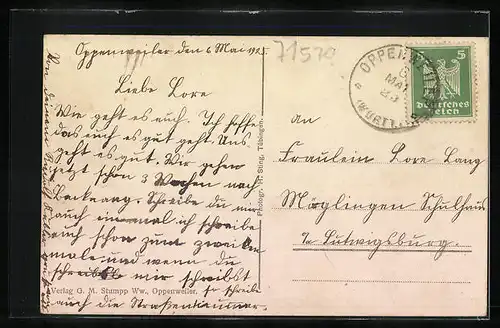 Oppenweiler den 6 Mai 1925.
71579
Liebe Lore
Wie geht es euch. Ich hoffe
das euch es gut geht. Uns
geht es gut. Wir gehen
jetzt schon 3 Wochen nach
Backnang. Schreibe du mir
auch einmal ich schreibe
auch schon zum zweiten
male und wenn du
mir schreibst
so schreibe
auch die Straßennummer.
Verlag G. M. Stumpp Ww., Oppenweiler.
Photogr. H. Sting, Tübingen.
OPPENWEILER
MAI
(WÜRTT.)
5
Deutsches
Reich
An
Fräulein Lore Lang
Möglingen Schulhaus
b/ Ludwigsburg.